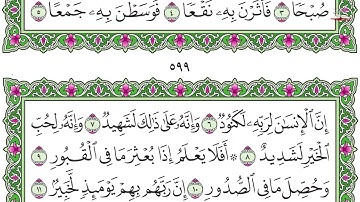 صُبْحًا ٣ فَأَثَرْنَ بِهِۦ نَقْعًا ٤ فَوَسَطْنَ بِهِۦ جَمْعًا ٥
٥٩٩
إِنَّ ٱلْإِنسَٰنَ لِرَبِّهِۦ لَكَنُودٌ ٦ وَإِنَّهُۥ عَلَىٰ ذَٰلِكَ لَشَهِيدٌ ٧ وَإِنَّهُۥ لِحُبِّ
ٱلْخَيْرِ لَشَدِيدٌ ٨ ۞ أَفَلَا يَعْلَمُ إِذَا بُعْثِرَ مَا فِى ٱلْقُبُورِ ٩
وَحُصِّلَ مَا فِى ٱلصُّدُورِ ١٠ إِنَّ رَبَّهُم بِهِمْ يَوْمَئِذٍ لَّخَبِيرٌۢ ١١